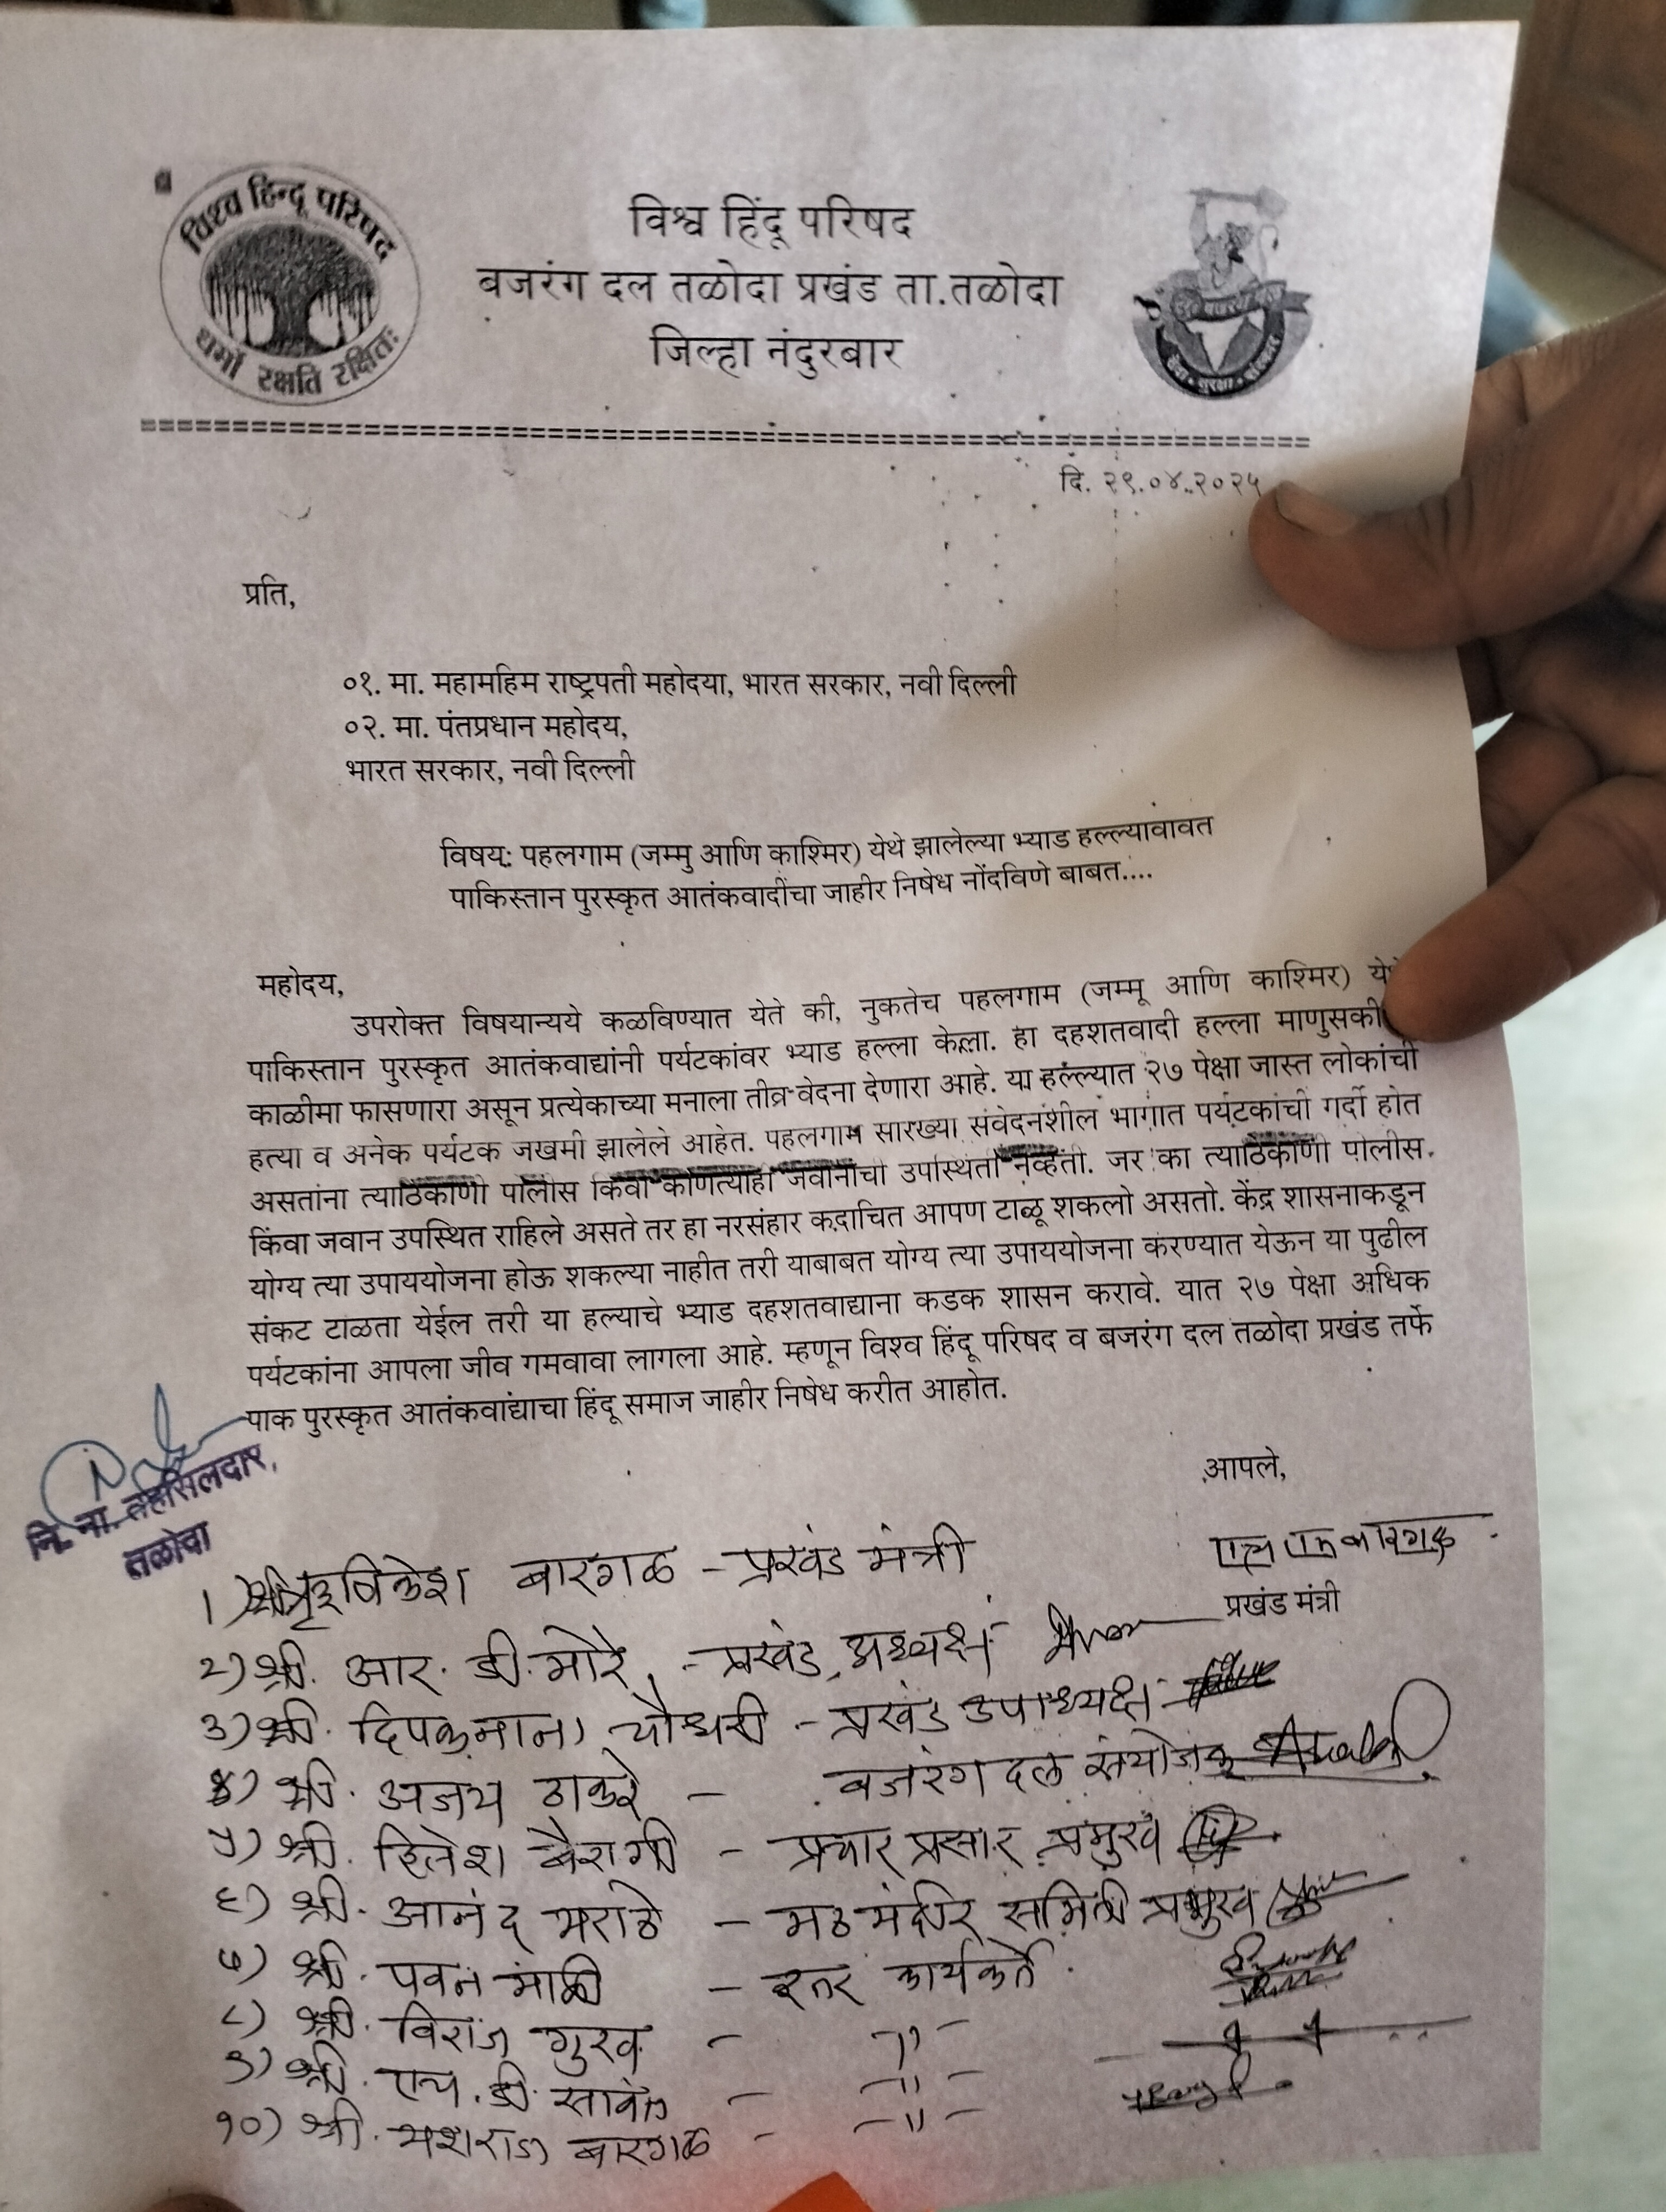 विश्व हिन्दू परिषद
धर्मो रक्षति रक्षितः
विश्व हिंदू परिषद
बजरंग दल तळोदा प्रखंड ता.तळोदा
जिल्हा नंदुरबार
सुरक्षा
दि. २९.०४.२०२५
प्रति,
०१. मा. महामहिम राष्ट्रपती महोदया, भारत सरकार, नवी दिल्ली
०२. मा. पंतप्रधान महोदय,
भारत सरकार, नवी दिल्ली
विषय: पहलगाम (जम्मु आणि काश्मिर) येथे झालेल्या भ्याड हल्ल्यावावत
पाकिस्तान पुरस्कृत आतंकवादींचा जाहीर निषेध नोंदविणे बाबत....
महोदय,
उपरोक्त विषयान्यये कळविण्यात येते की, नुकतेच पहलगाम (जम्मू आणि काश्मिर)
पाकिस्तान पुरस्कृत आतंकवाद्यांनी पर्यटकांवर भ्याड हल्ला केला. हा दहशतवादी हल्ला
काळीमा फासणारा असून प्रत्येकाच्या मनाला तीव्र वेदना देणारा आहे. या हल्ल्यात २७ पेक्षा जास्त लोकांची
हत्या व अनेक पर्यटक जखमी झालेले आहेत. पहलगाम सारख्या संवेदनशील भागात पर्यटकांची गर्दी होत
असतांना त्याठिकाणी पोलीस किंवा कोणत्याही जवानांची उपस्थिती नव्हती. जर का त्याठिकाणी पोलीस
किंवा जवान उपस्थित राहिले असते तर हा नरसंहार कदाचित आपण टाळू शकलो असतो. केंद्र शासनाकडून
योग्य त्या उपाययोजना होऊ शकल्या नाहीत तरी याबाबत योग्य त्या उपाययोजना करण्यात येऊन या पुढील
संकट टाळता येईल तरी या हल्याचे भ्याड दहशतवाद्याना कडक शासन करावे. यात २७ पेक्षा अधिक
पर्यटकांना आपला जीव गमवावा लागला आहे. म्हणून विश्व हिंदू परिषद व बजरंग दल तळोदा प्रखंड तर्फे
पाक पुरस्कृत आतंकवांद्याचा हिंदू समाज जाहीर निषेध करीत आहोत.
नि. ना. तहसिलदार,
तळोदा
आपले,
प्रखंड मंत्री
1) बारगळ - प्रखंड मंत्री
२) श्री. आर. डी. मोरे - प्रखंड अध्यक्ष
३) श्री. चौधरी - प्रखंड उपाध्यक्ष
४) श्री. अजय ठाकरे - बजरंग दल संयोजक
५) श्री. हितेश बैरागी - प्रचार प्रसार प्रमुख
६) श्री. आनंद मराठे - मठ मंदीर समिती प्रमुख
७) श्री. पवन माळी - इतर कार्यकर्ते
८) श्री. विराज गुरव - -"-
९) श्री. एच. डी. सावंत - -"-
१०) श्री. यशराज बारगळ - -"-